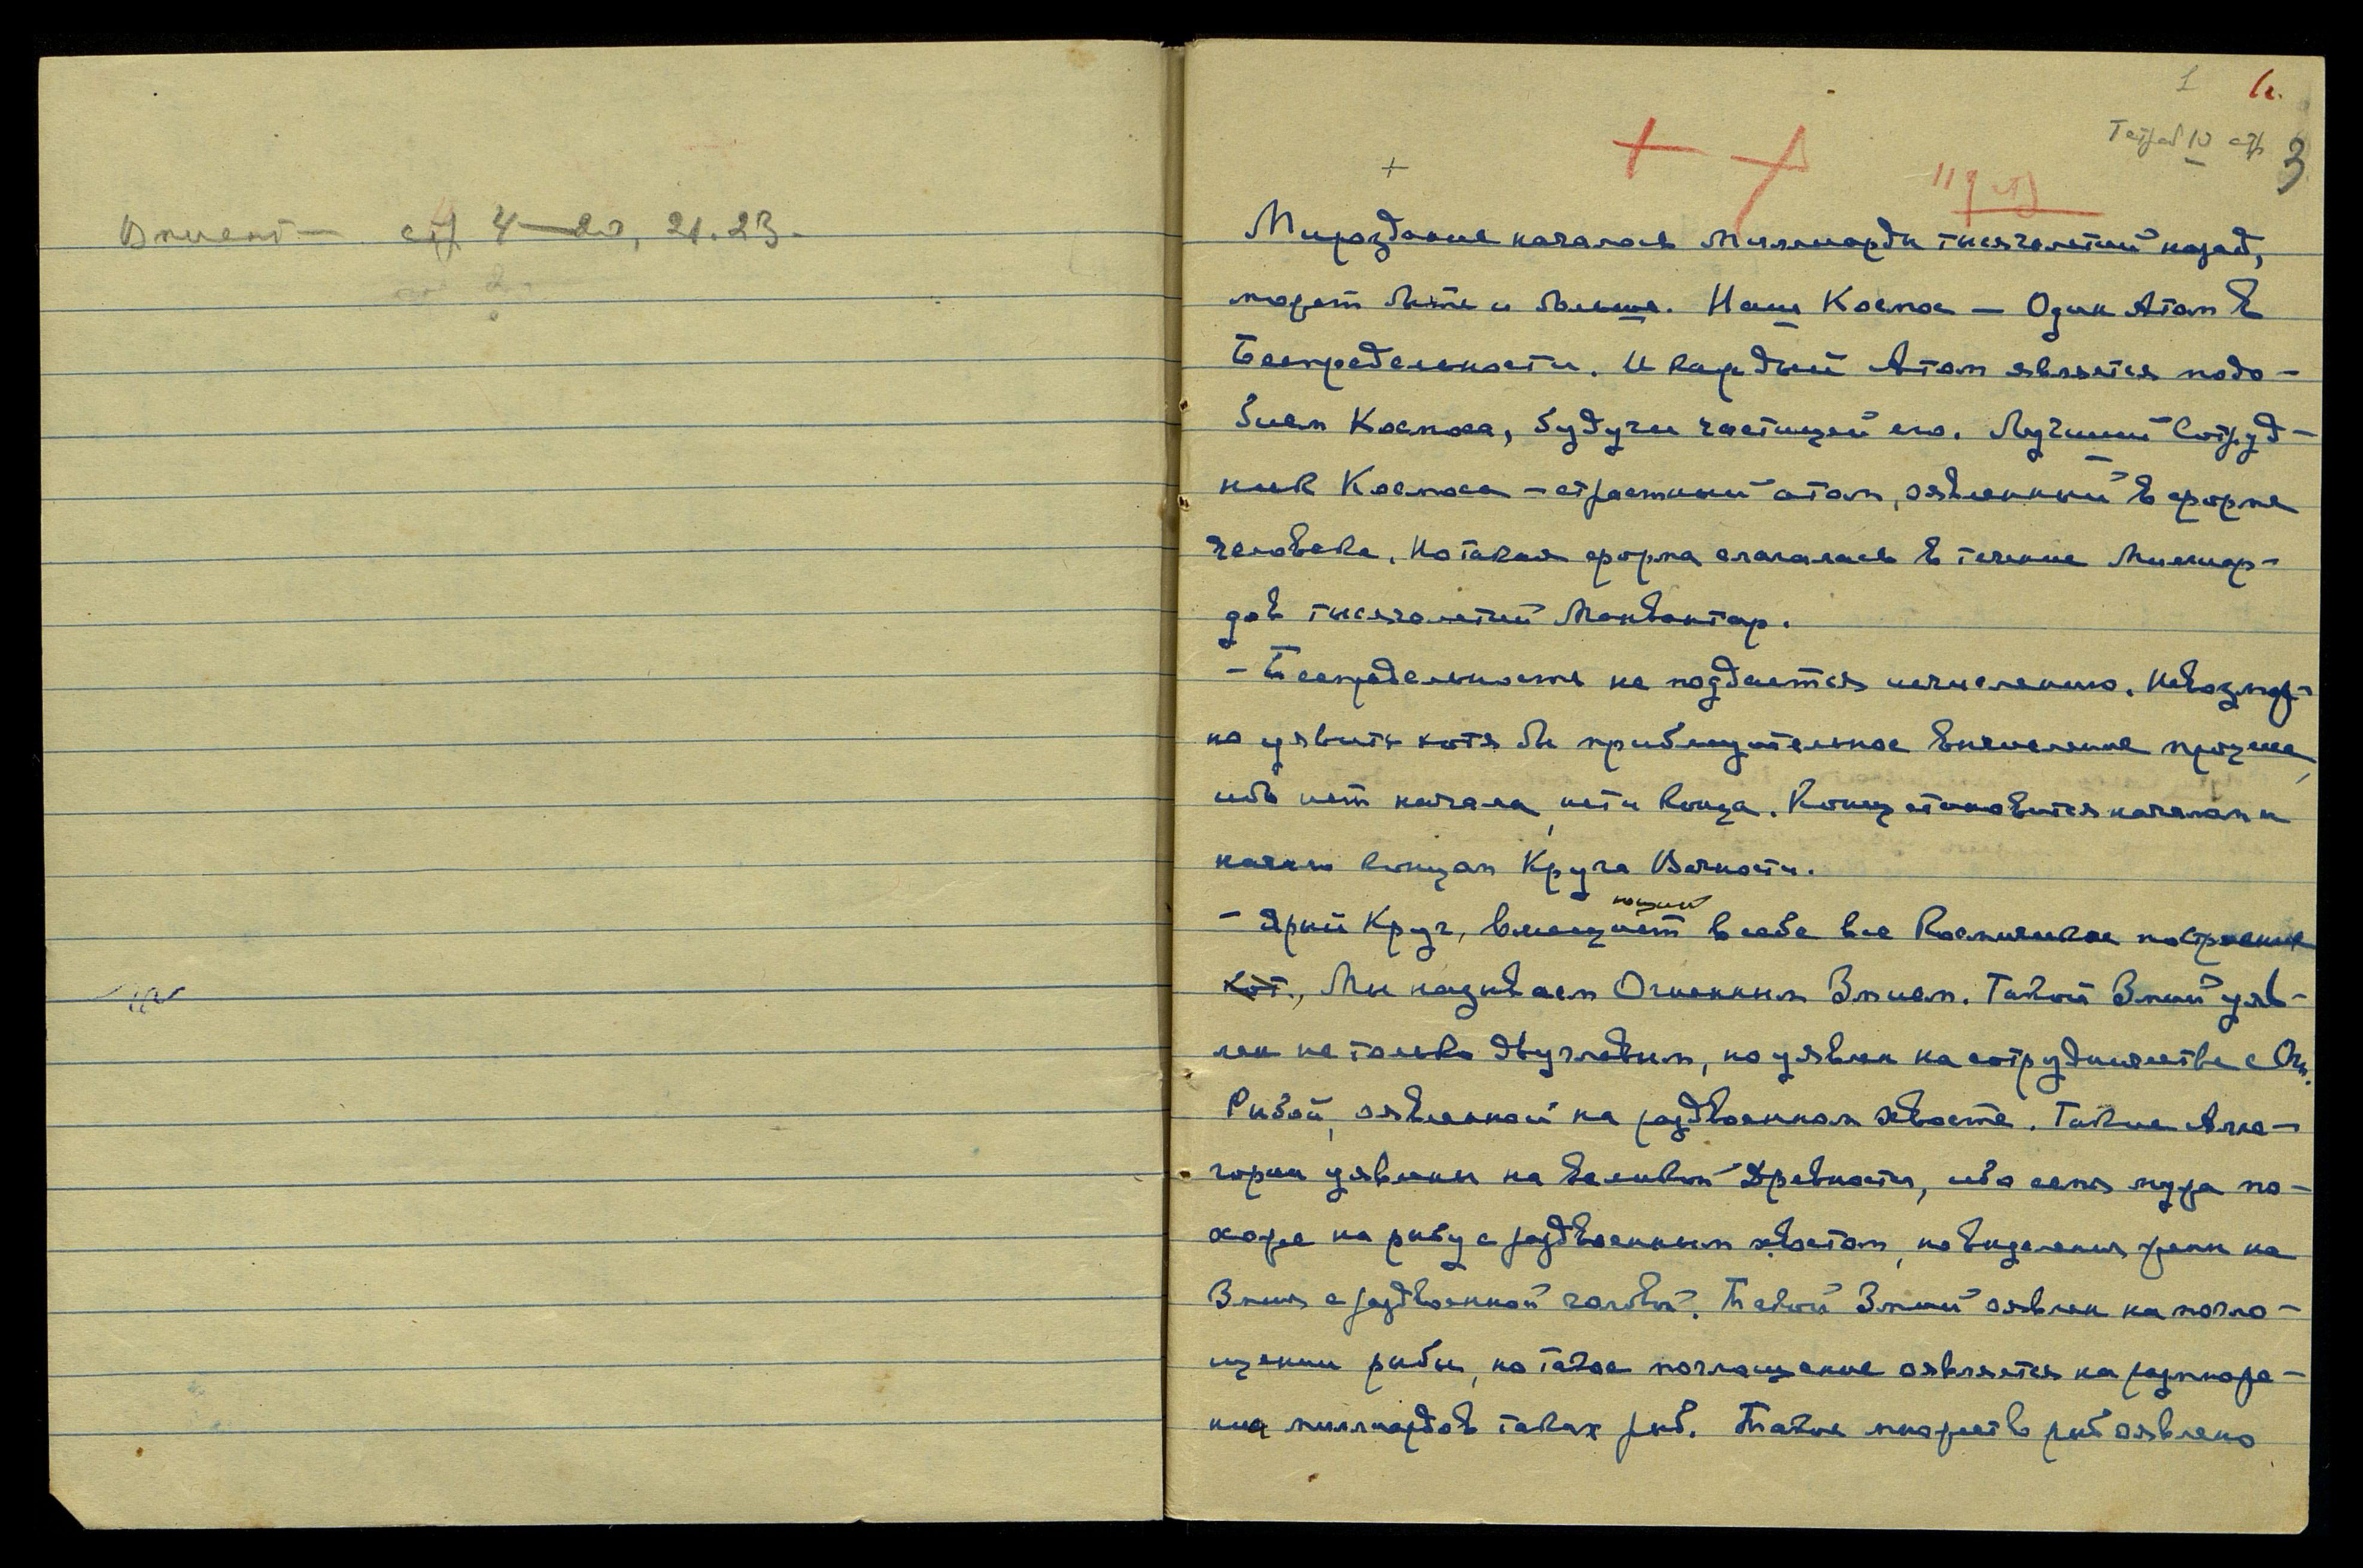 стр 4—20, 21.23.
1
Тетрадь 10 стр 3
Мироздание началось Миллиарды тысячелетий назад,
может быть и больше. Наш Космос — Один Атом в
Беспредельности. И каждый Атом является подо-
бием Космоса, будучи частицей его. Лучший Сотруд-
ник Космоса – страстный атом, оявленный в форме
человека. Но такая форма слагалась в течение Миллиар-
дов тысячелетий Манвантар.
– Беспредельность не поддается исчислению. Невозмож-
но уявить хотя бы приблизительное вычисление
ибо нет начала, нет и конца. Конец становится началом и
начало концом Круга Вечности.
ющий
– Ярый Круг, вмещает в себе все Космическое построение
кот., Мы называем Огненным Змием. Такой Змий уяв-
лен не только двуглавым, но уявлен на сотрудничестве с Огн.
Рыбой, оявленной на раздвоенном хвосте. Такие Алле-
гории уявлены на великой Древности, ибо семя мужа по-
хоже на рыбу с раздвоенным хвостом, но выделения жены на
Змия с раздвоенной головой. Такой Змий оявлен на погло-
щении рыбы, но такое поглощение оявляется на размноже-
нии миллиардов таких рыб. Такое множество рыб оявлено